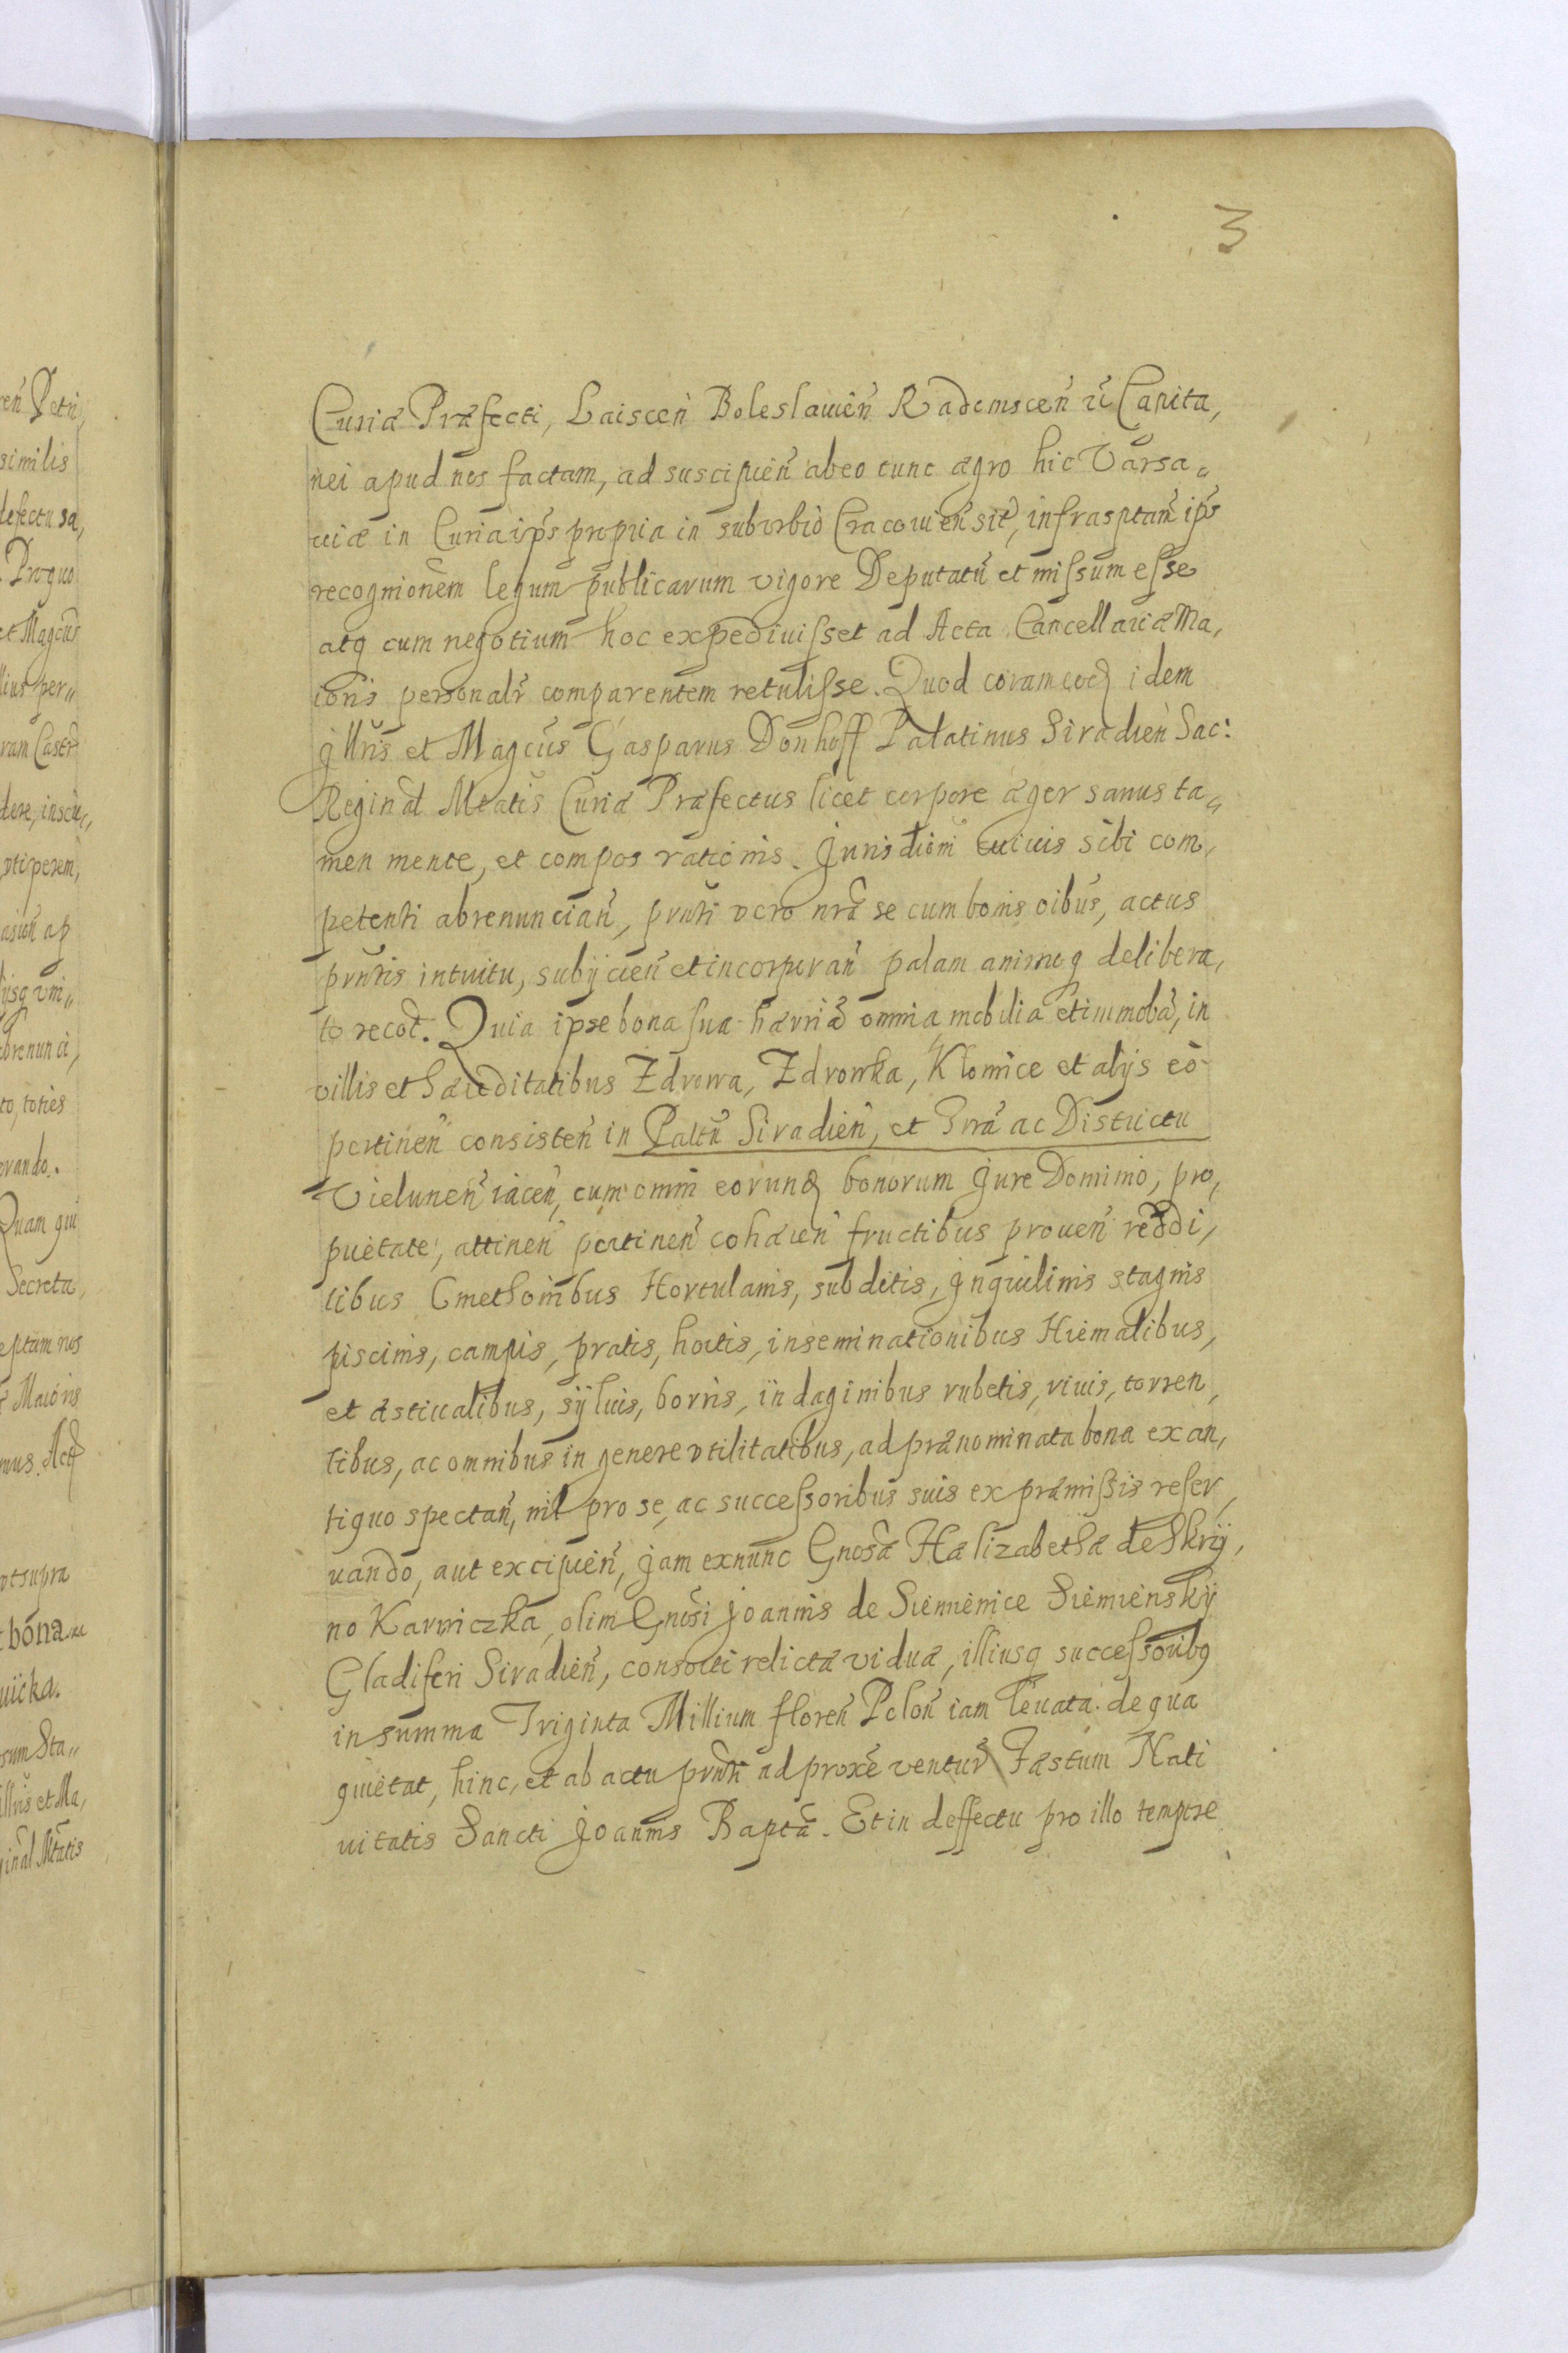 3
Curiæ Præfecti, Laiscen̄ Boleslauien̄ Radomscen̄ & Capita,
nei apud nos factam, ad suscipien̄ ab eo tunc ægro hic Varsa„
uiæ in Curia ip̄s propria in suburbio Cracouien̄ sit̄, infrasptam̄ ip̄s
recognionem̄ legum publicarum vigore Deputatū et missum esse
atq cum negotium hoc expediuisset ad Acta Cancellariæ Ma,
ioris personalr̄ comparentem retulisse. Quod coram eod̄ idem
Jllris̄ et Magcus̄ Gasparus Donhoff Palatinus Siradien̄ Sac:
Reginal̄ Mtatis̄ Curiæ Præfectus licet corpore æger sanus ta„
men mente, et compos rationis. Jurisdiōni cuiuis sibi com,
petenti abrenuncian̄, prn̄ti vero nr̄æ se cum bonis oib̄us, actus
prn̄tis intuitu, subijcien̄ et incorporan̄ palam animoq delibera,
to recot̄. Quia ipse bona sua hærriā omnia mobilia et immobā, in
villis et hæreditatibus Zdrowa, Zdrowka, Klomice et alijs eō
pertinen̄ consisten̄ in Paltn̄ Siradien̄, et Trrā ac Districtu
Vielunen̄ iacen̄, cum omni eorund̄ bonorum Jure Dominio, pro,
prietate, attinen̄ pertinen̄ cohæren̄ fructibus prouen̄ reddi,
tibus Cmethonibus Hortulanis, subditis, Jnquilinis stagnis
piscinis, campis, pratis, hortis, inseminationibus Hiemalibus,
et æstiualibus, syluis, borris, indaginibus rubetis, riuis, torren,
tibus, ac omnibus in genere vtilitatibus, ad prænominata bona ex an,
tiquo spectan̄, nil pro se, ac successoribus suis ex præmissis reser,
uando, aut excipien̄, Jam exnunc Gnosā Hælizabethæ de Skrzy,
no Karwiczka, olim Gnosi Joannis de Siemienice Siemiensky
Gladiferi Siradien̄, consorti relictæ viduæ, illiusq successoribq
in summa Triginta Millium floren̄ Polon̄ iam leuata. de qua
quietat, hinc, et ab actu prn̄ti ad proxē ventur̄ Fæstum Nati
uitatis Sancti Joannis Baptæ. Et in deffectu pro illo tempore